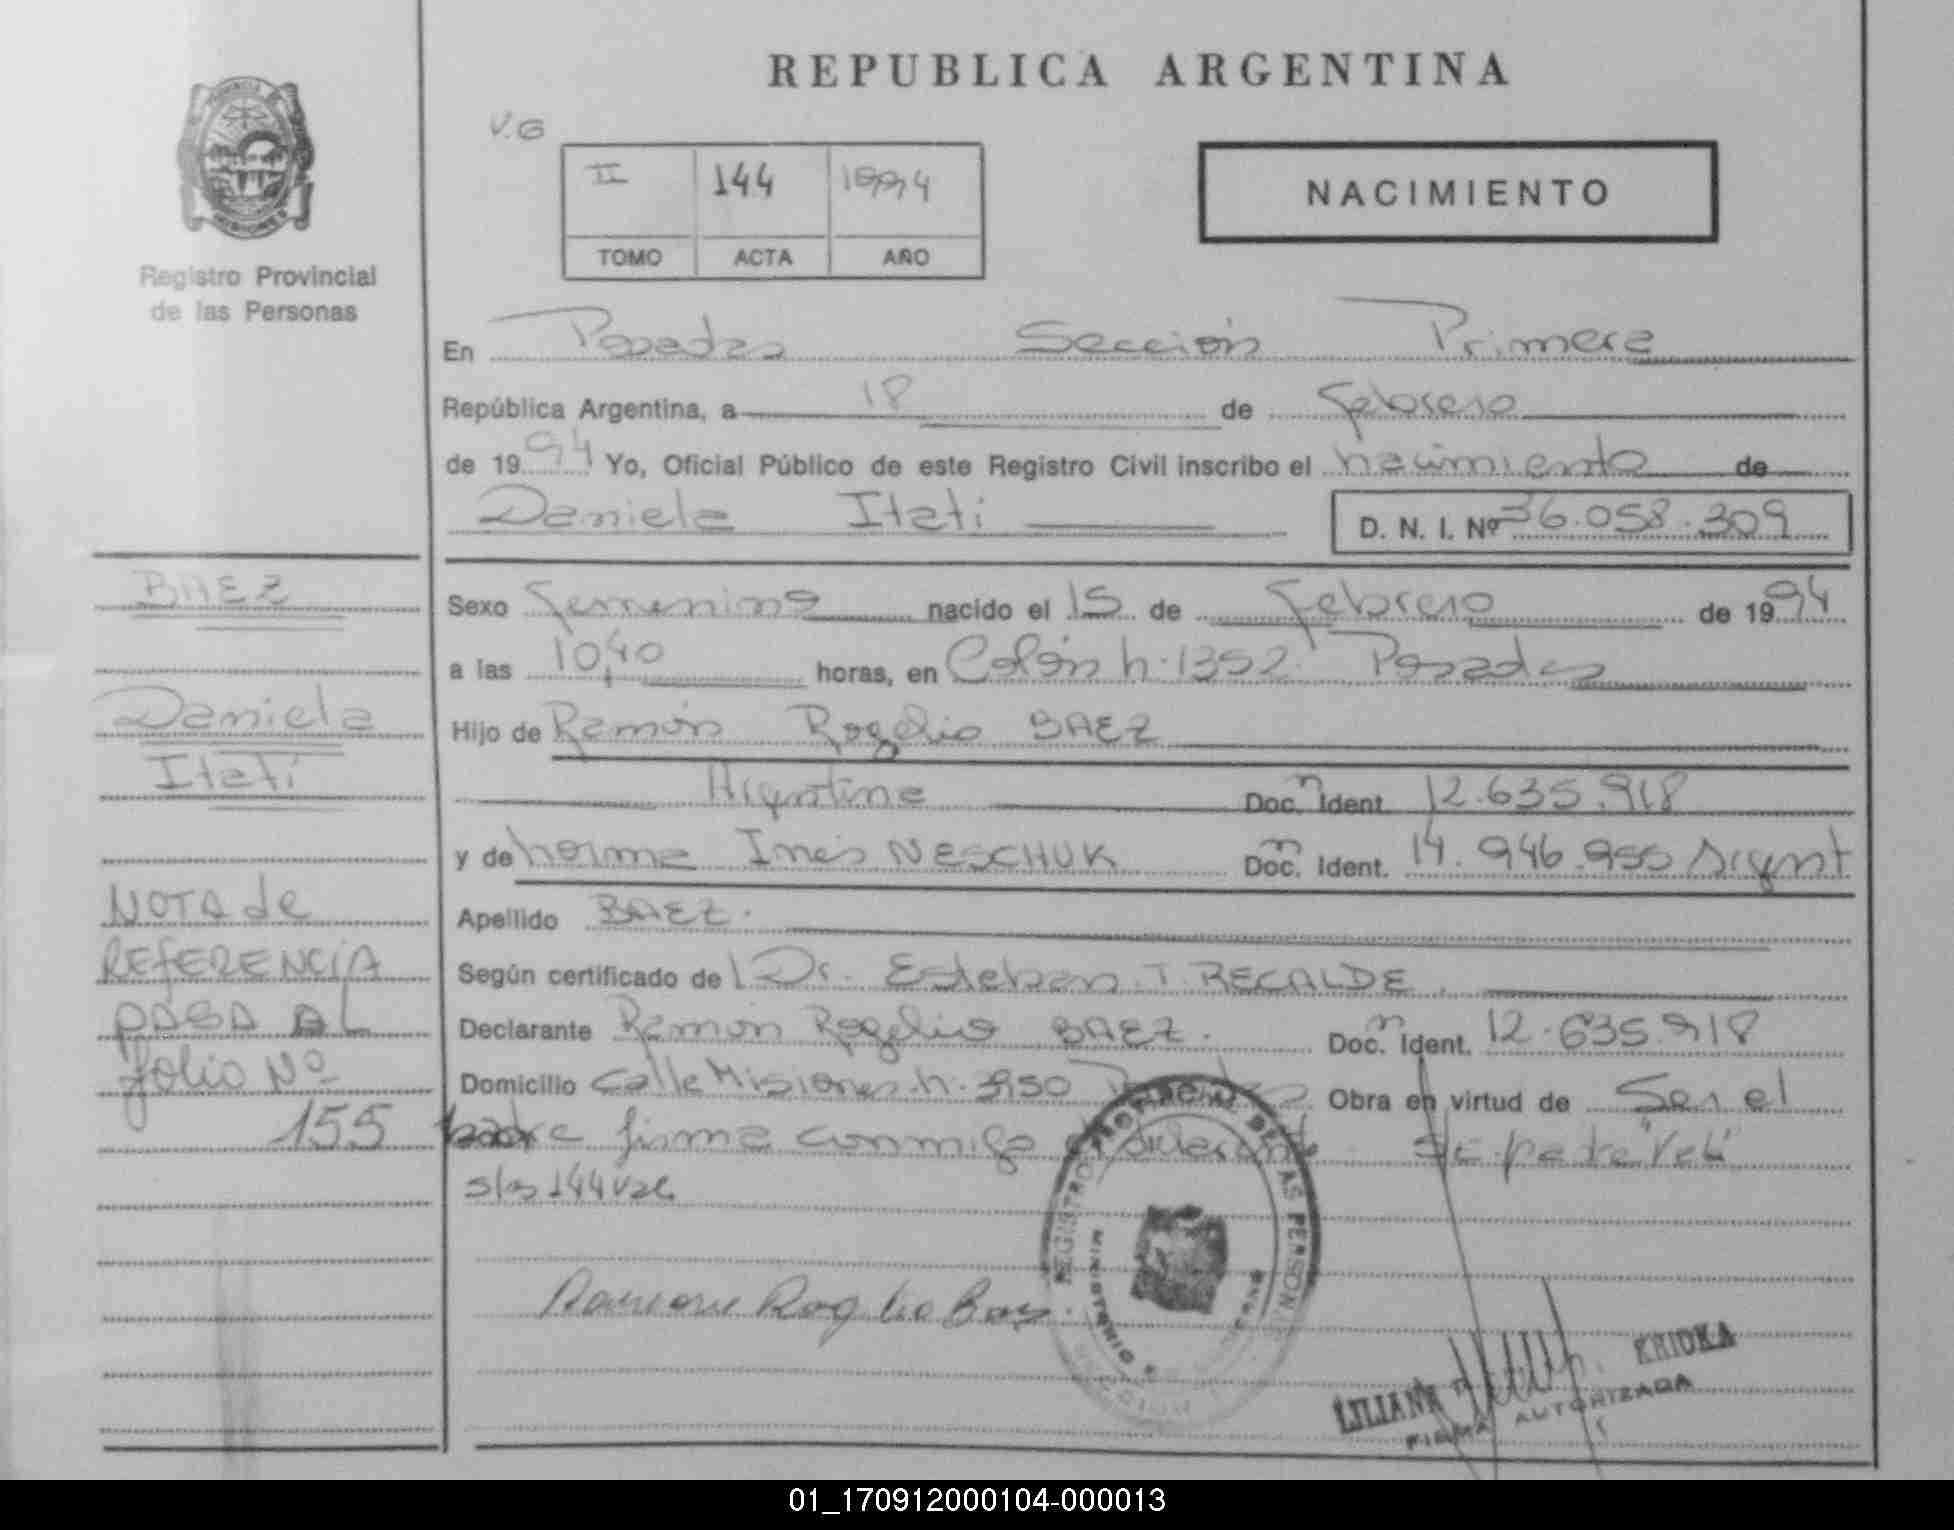 REPUBLICA ARGENTINA
V.G
II 144 1994
TOMO ACTA AÑO
NACIMIENTO
PROVINCIA DE MISIONES
Registro Provincial
de las Personas
En Posadas Sección Primera
República Argentina, a 18 de febrero
de 1994 Yo, Oficial Público de este Registro Civil inscribo el nacimiento de
Daniela Itati D. N. I. Nº 36.058.309
BAEZ
Daniela
Itati
NOTA de
REFERENCIA
PASA AL
folio Nº
155
Sexo femenino nacido el 15 de febrero de 1994
a las 10,40 horas, en Colón n. 1352. Posadas
Hijo de Ramón Rogelio BAEZ
Argentina Doc. n Ident. 12.635.918
y de Norma Ines NESCHUK Doc. n Ident. 14.946.955 Argent
Apellido BAEZ.
Según certificado de Dr. Esteban T. RECALDE.
Declarante Ramón Rogelio BAEZ. Doc. n Ident. 12.635.918
Domicilio Calle Misiones n. 3950 Posadas Obra en virtud de Ser el
padre firma conmigo el declarante "Vale"
144 Vale
Ramon Rogelio Baez
REGISTRO PROVINCIAL DE LAS PERSONAS
MINISTERIO DE GOBIERNO
LILIANA KRIDKA
FIRMA AUTORIZADA
01_170912000104-000013